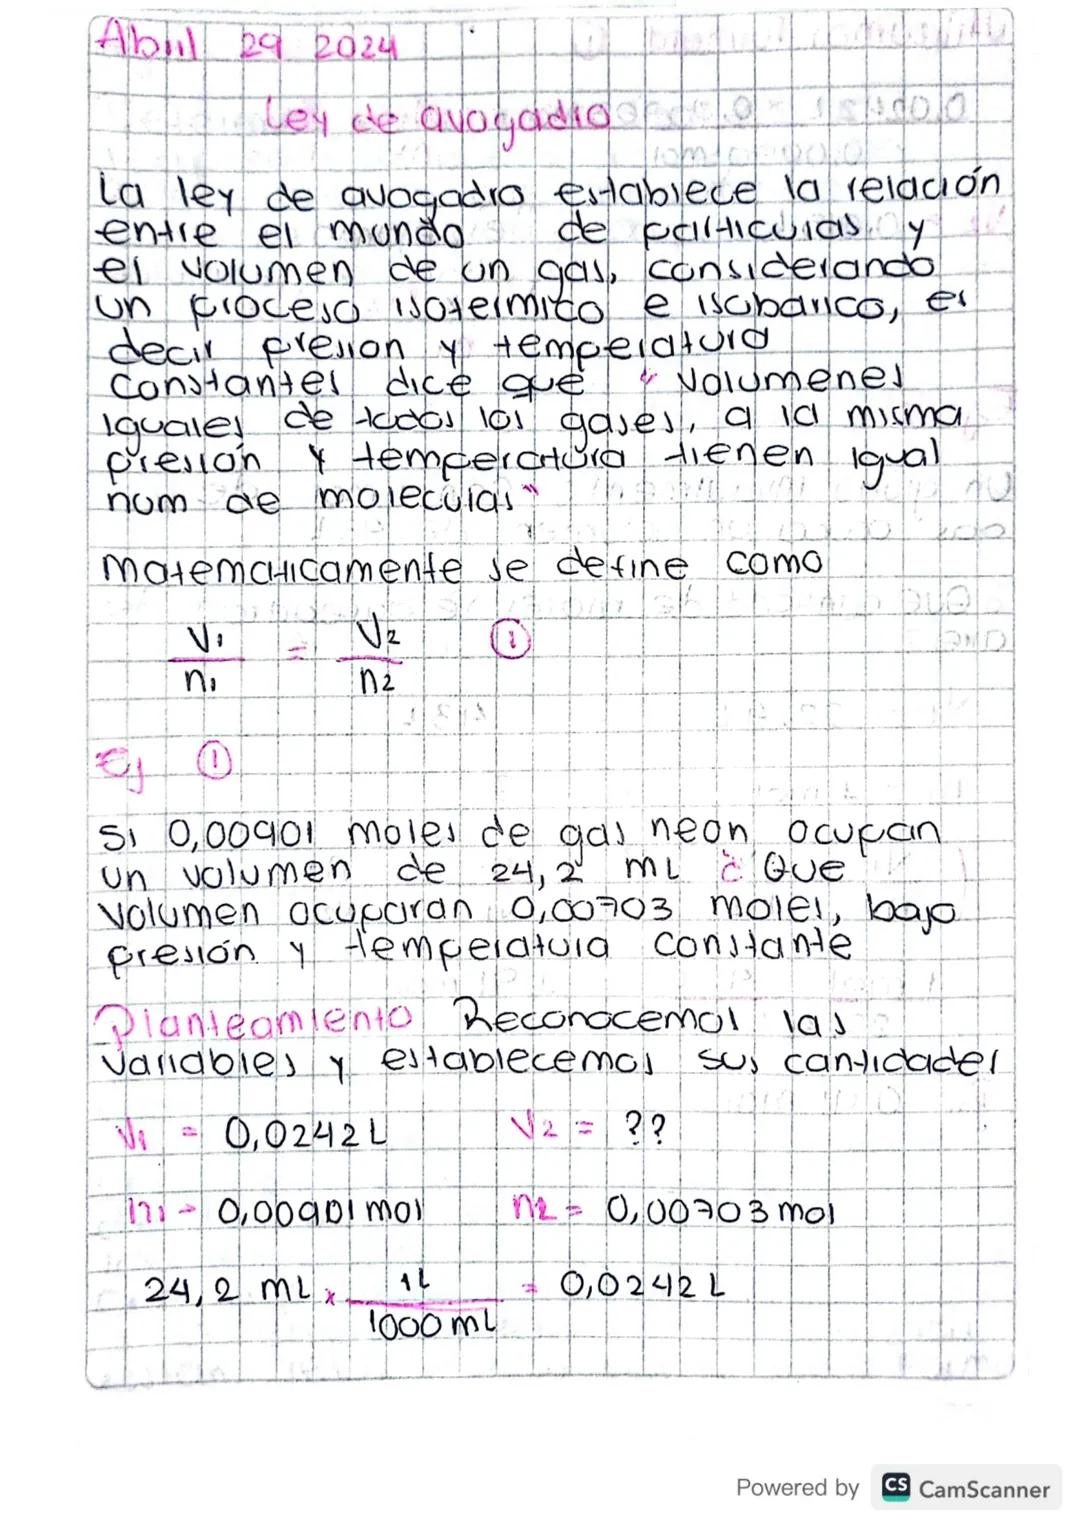 Abril 29 2024
Ley de avogadro
La ley de avogadro establece la relación
entre el mundo de particulas y
el volumen de un gas, considerando
un proceso isotermico e isobarico, es
decir presion y temperatura
constantes dice que " volumenes
iguales de todos los gases, a la misma
presión y temperatura tienen igual
num de moleculas"
matematicamente se define como
V1 / n1 = V2 / n2 ①
Ej ①
Si 0,00901 moles de gas neon ocupan
un volumen de 24,2 mL ¿ Que
volumen ocuparan 0,00703 moles, bajo
presión y temperatura constante
Planteamiento Reconocemos las
variables y establecemos sus cantidades
V1 = 0,0242 L V2 = ??
n1 = 0,00901 mol n2 = 0,00703 mol
24,2 mL x 1L / 1000 mL = 0,0242 L
Powered by CS CamScanner